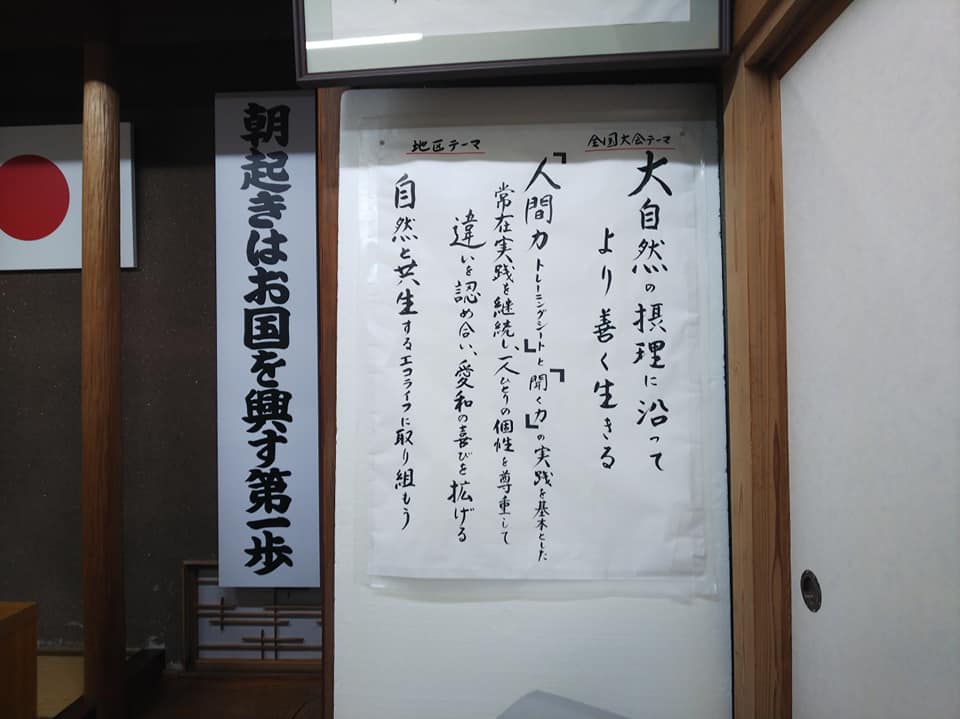 全国大会テーマ
大自然の摂理に沿って
より善く生きる
地区テーマ
「人間力トレーニングシート」と「聞く力」の実践を基本とした
常在実践を継続し、一人ひとりの個性を尊重して
違いを認め合い、愛和の喜びを拡げる
自然と共生するエコライフに取り組もう
朝起きはお国を興す第一歩